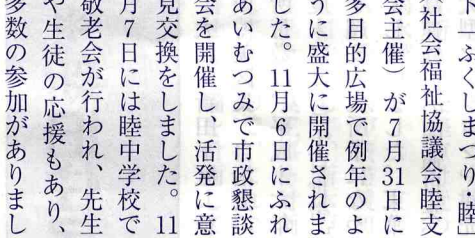 ト「ふくしまつり睦」
(社会福祉協議会睦支
会主催）が7月31日に
多目的広場で例年のよ
うに盛大に開催されま
した。11月6日にふれ
あいむつみで市政懇談
会を開催し、活発に意
見交換をしました。11
月7日には睦中学校で
敬老会が行われ、先生
や生徒の応援もあり、
多数の参加がありまし